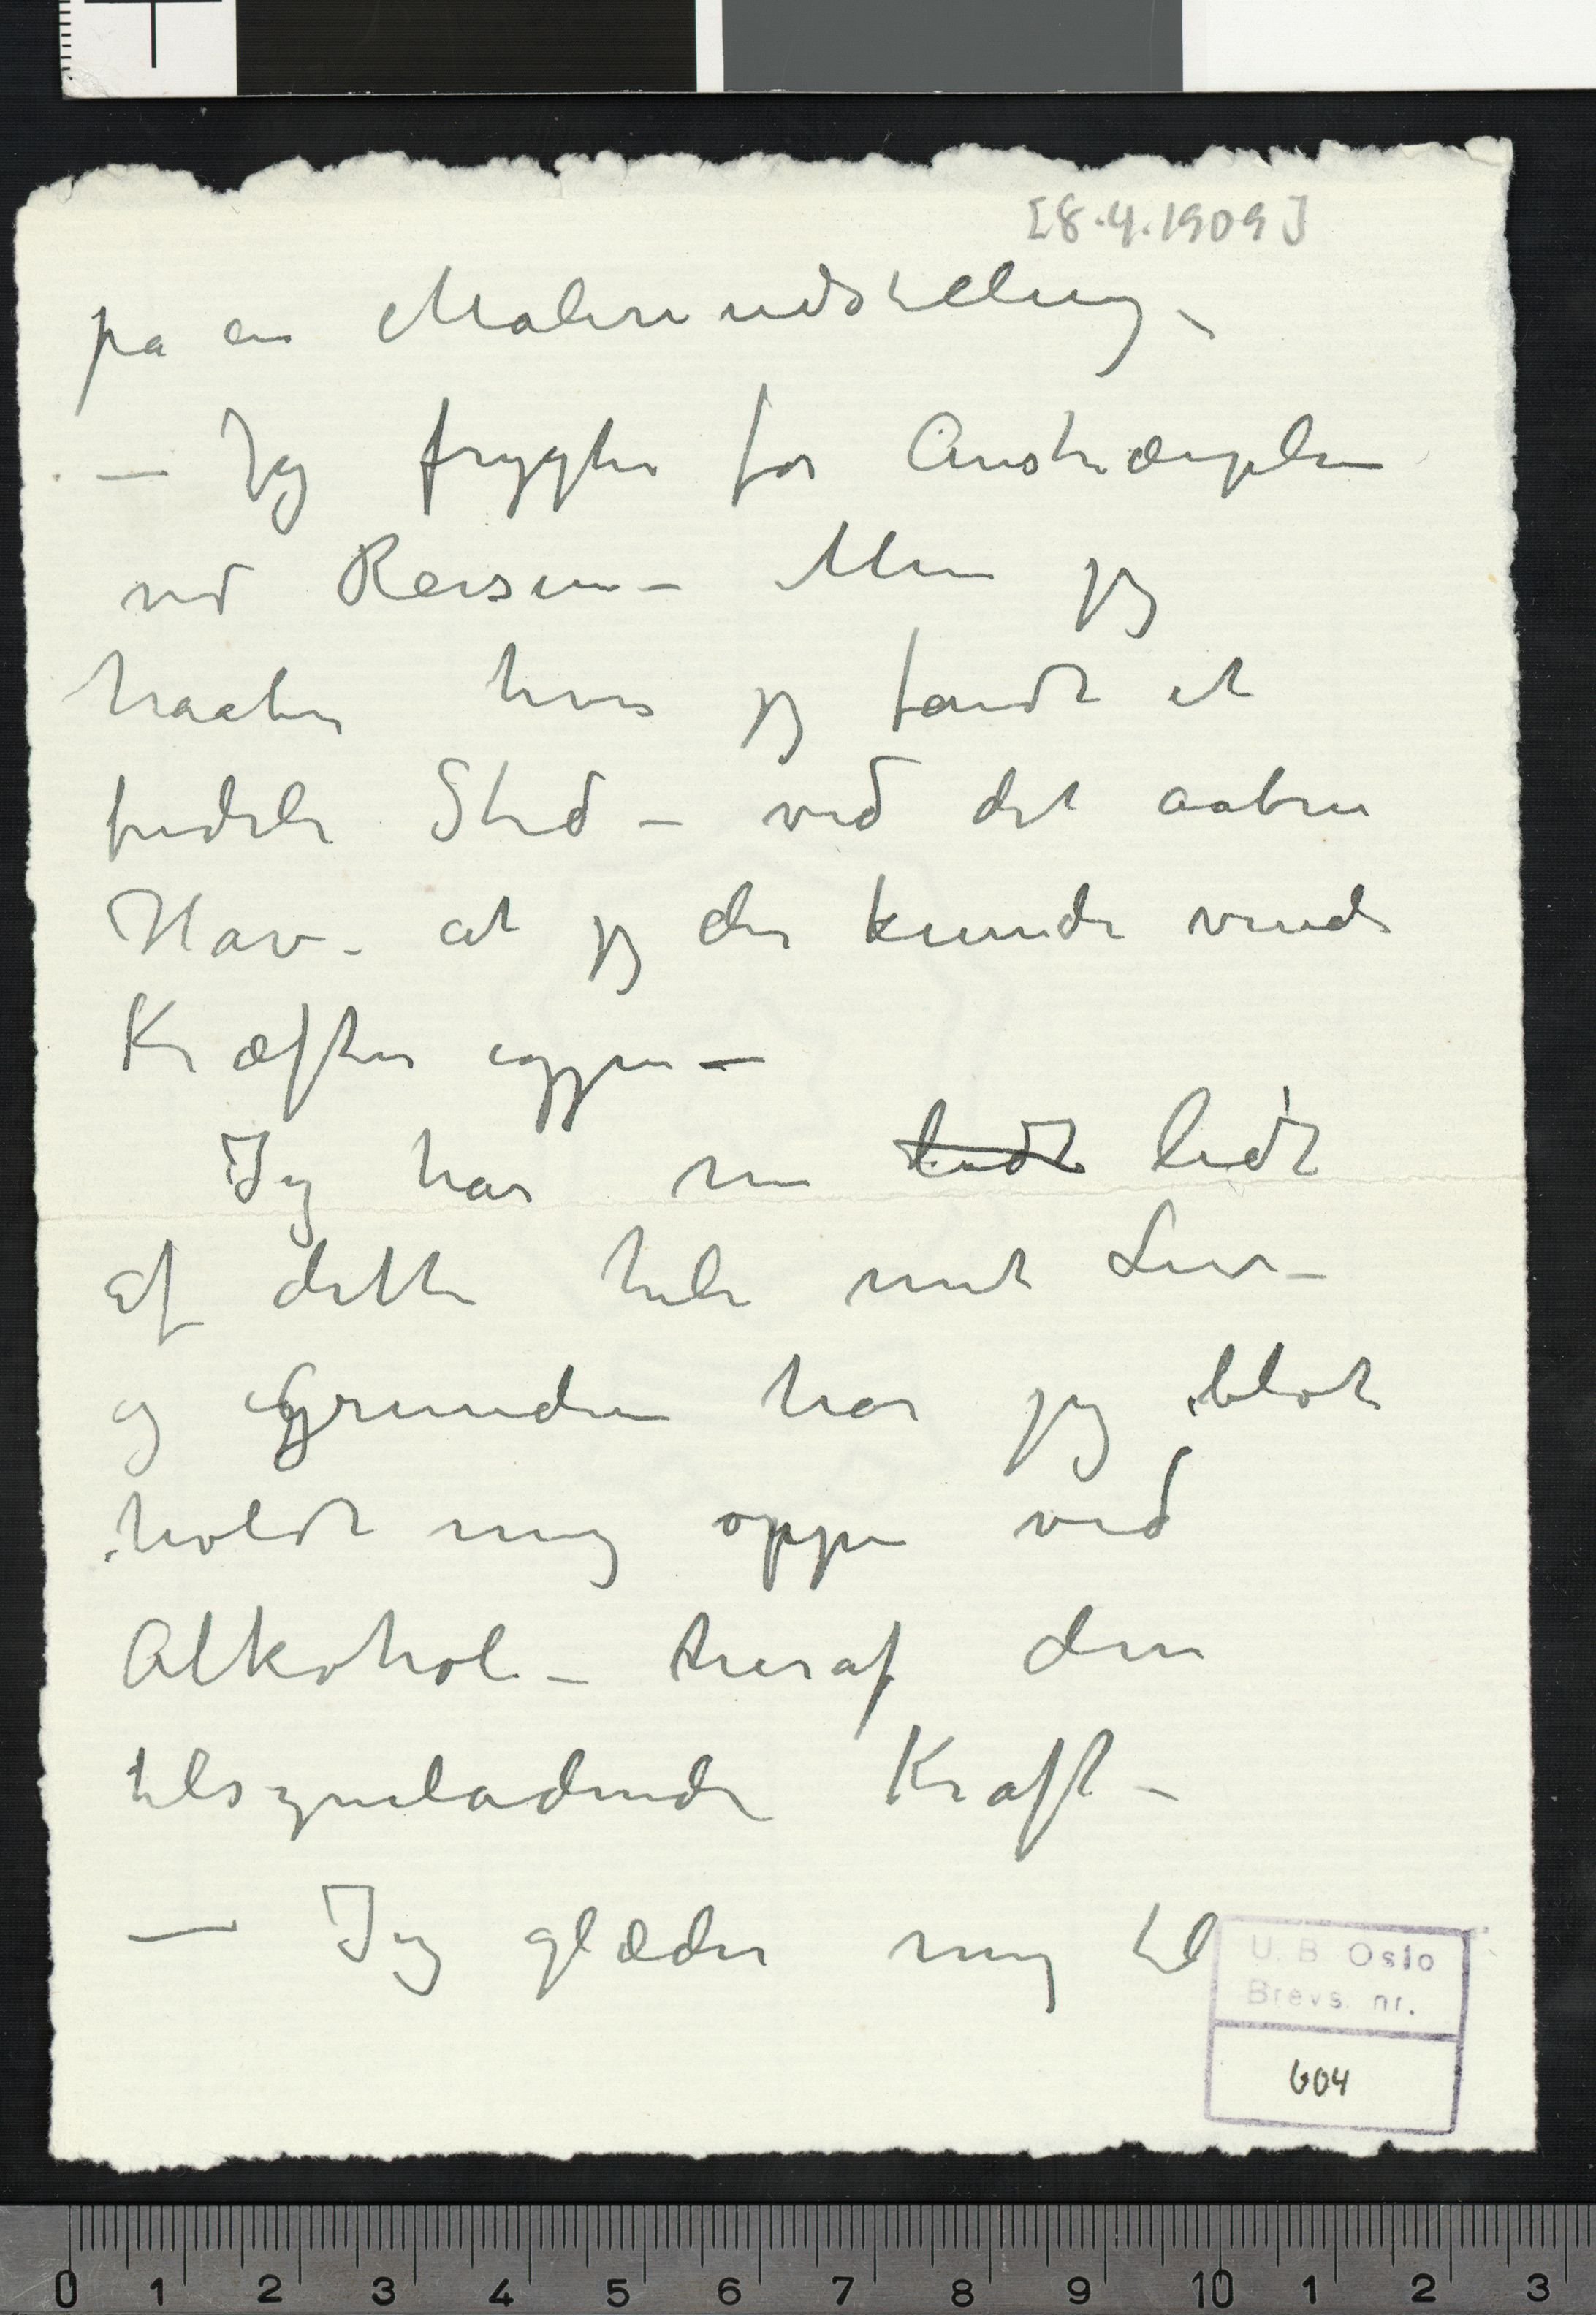 [8.4.1909]
på en Maleriudstilling –
– Jeg frygter for Anstrængelsen
ved Reisen – Men jeg
haaber hvis jeg fandt et
fredeli Sted – ved det aabne
Hav – at jeg der kunde vinde
Kræfter igjen –
Jeg har nu lidt lidt
af dette hele mit Liv –
og i Grunden har jeg blot
holdt mig oppe ved
Alkohol – heraf den
tilsyneladende Kraft –
– Jeg glæder mig til
U. B. Oslo
Brevs. nr.
604
0 1 2 3 4 5 6 7 8 9 10 1 2 3